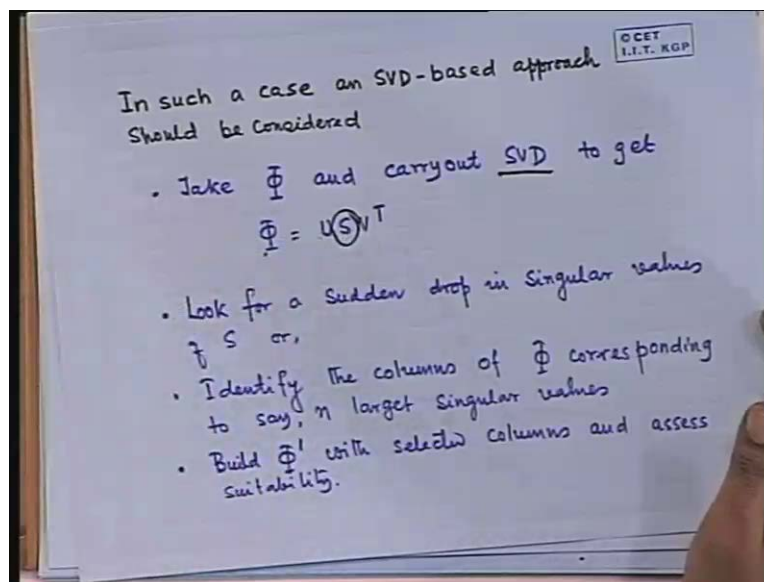 © CET
I.I.T. KGP
In such a case an SVD-based approach
Should be considered
• Take Φ and carryout SVD to get
Φ = USVᵀ
• Look for a sudden drop in singular values
of S or,
• Identify the columns of Φ corresponding
to say, n larget singular values
• Build Φ' with selected columns and assess
suitability.